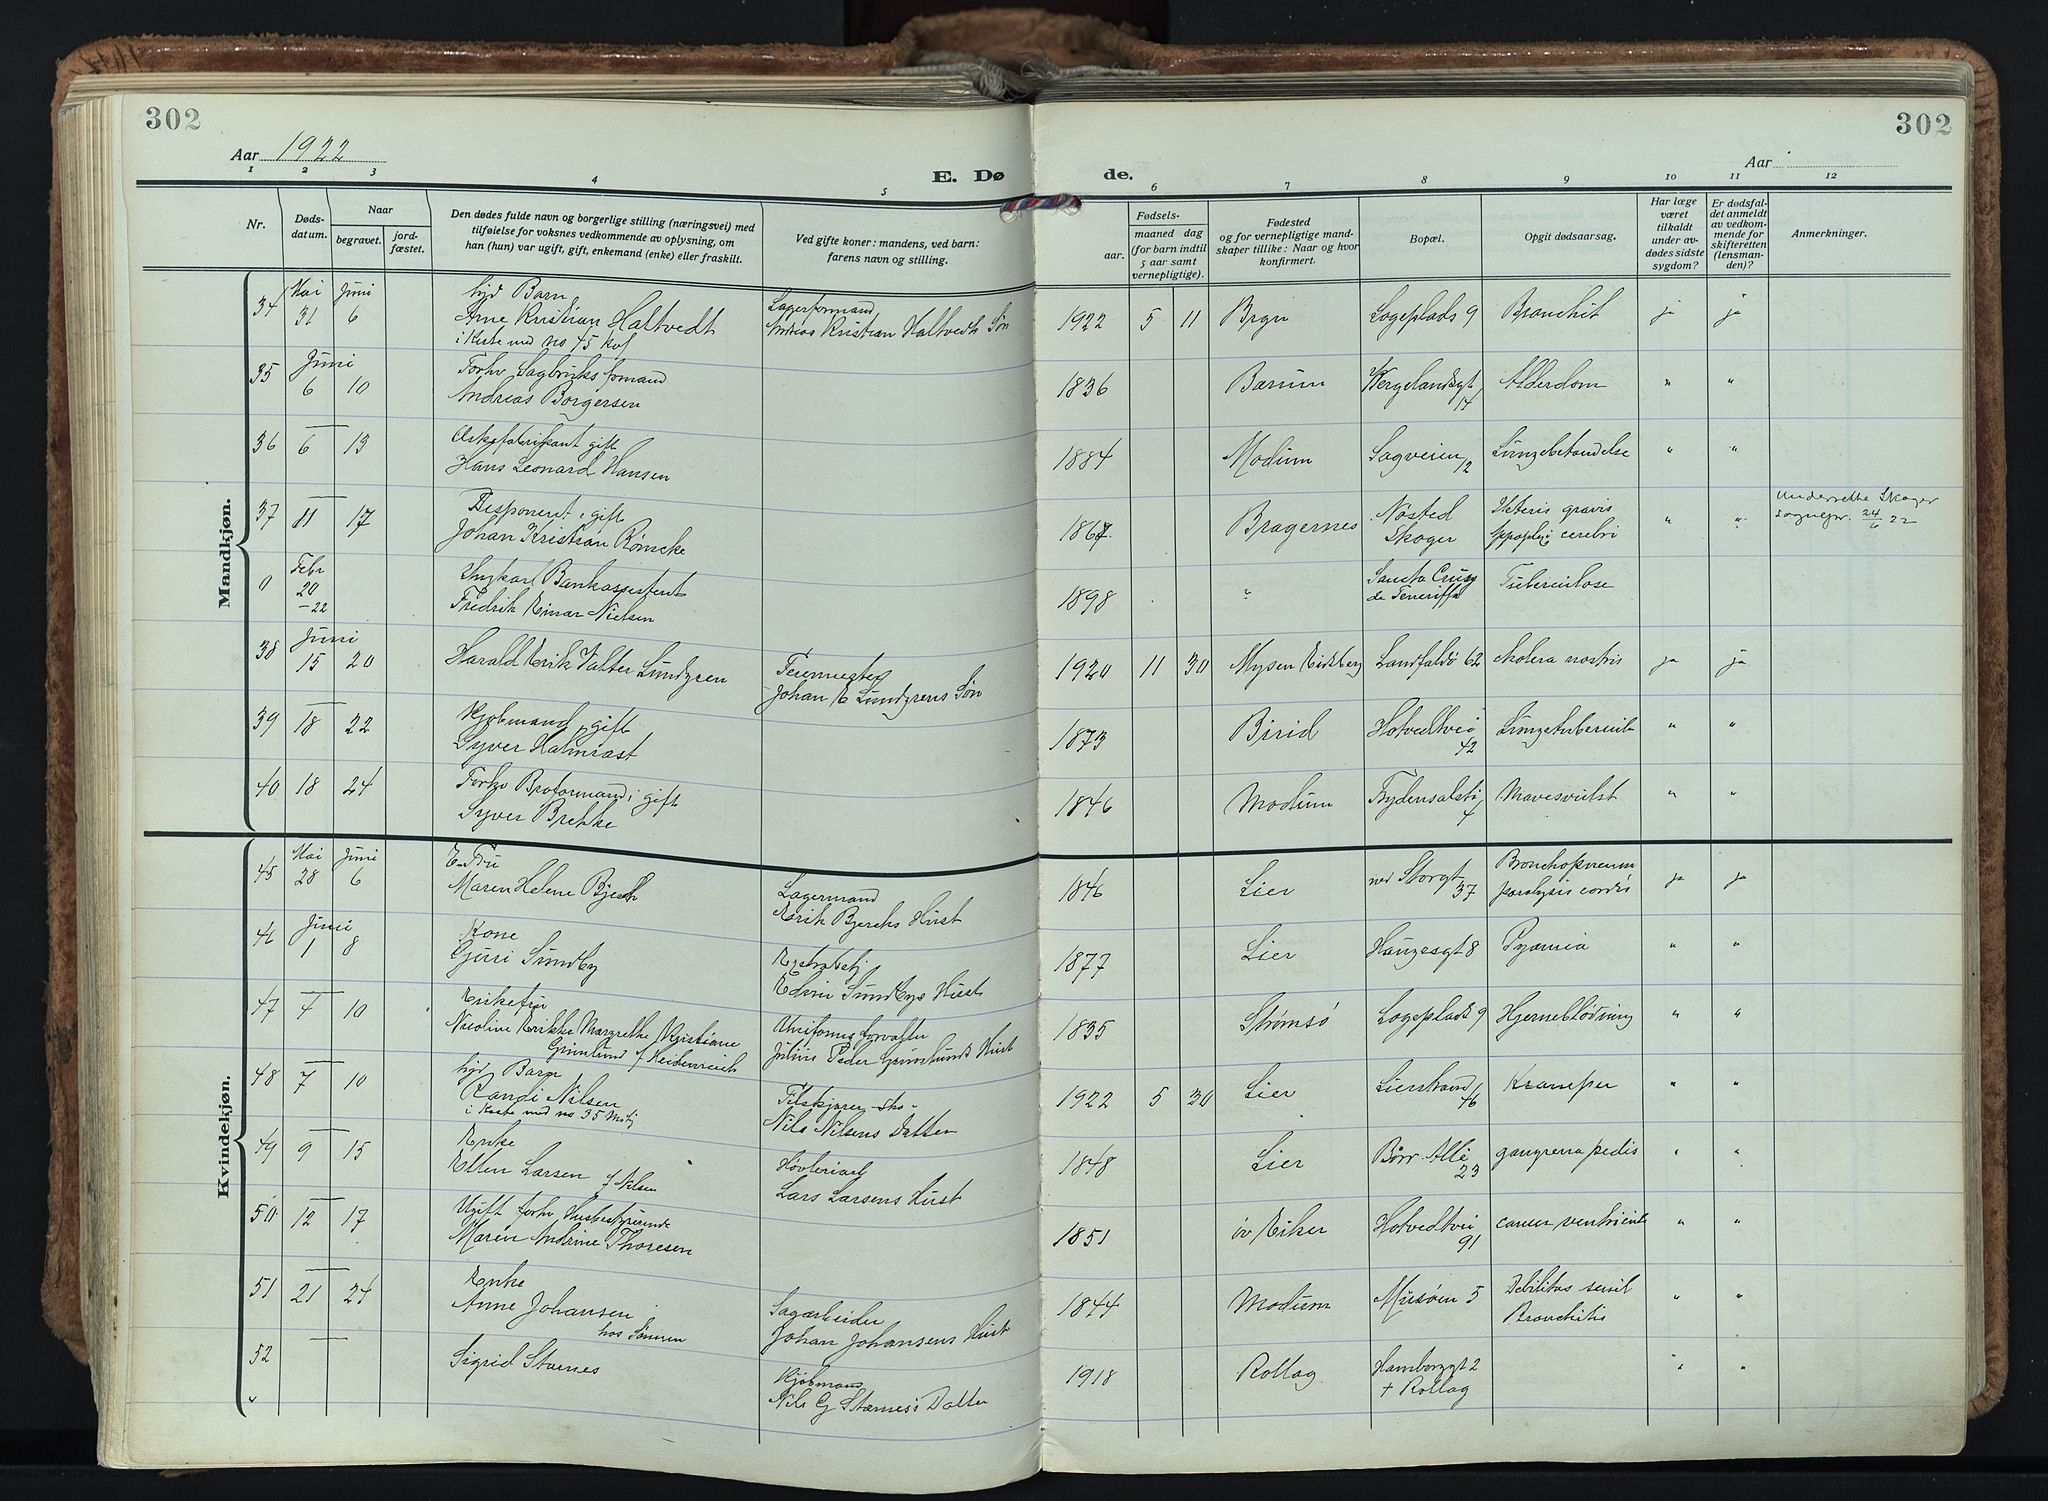 302
302
Aar 1922
Aar
E. Dø
de.
1 2 3 4 5 6 7 8 9 10 11 12
Nr.
Døds-
datum.
Naar
begravet.
jord-
fæstet.
Den dødes fulde navn og borgerlige stilling (næringsvei) med
tilføielse for voksnes vedkommende av oplysning, om
han (hun) var ugift, gift, enkemand (enke) eller fraskilt.
Ved gifte koner: mandens, ved barn:
farens navn og stilling.
Fødsels-
aar.
maaned dag
(for barn indtil
5 aar samt
vernepligtige).
Fødested
og for vernepligtige mand-
skaper tillike: Naar og hvor
konfirmert.
Bopæl.
Opgit dødsaarsag.
Har læge
været
tilkaldt
under av-
dødes sidste
sygdom?
Er dødsfal-
det anmeldt
av vedkom-
mende for
skifteretten
(lensman-
den)?
Anmerkninger.
Mandkjøn.
34 Mai 31 Juni 6
Barn
Arne Kristian Haltvedt
i Kiste med no 45 Kvk
Lagerformand
Andreas Kristian Haltvedts Søn
1922 5 11 Brgn Logeplads 9 Bronchit ja ja
35 Juni 6 10
Forhv Sagbruksformand
Andreas Borgersen
1836 Bærum Wergelandsgt 14 Alderdom " "
36 6 13
Æskefabrikant gift
Hans Leonard Hansen
1884 Modum Sagveien 12 Lungebetændelse " "
37 11 17
Disponent, gift
Johan Kristian Rømcke
1867 Bragernes Nøsted Skoger Ikteris gravis
Appoplexi cerebri " "
Underrettet Skoger
sognepr. 24/6 22
0 Febr 20 -22
Ungkarl Bankassistent
Fredrik Einar Nielsen
1898 " Sancta Crus
de Teneriffa Tuberculose
38 Juni 15 20
Harald Erik Valter Lundgren
Feiermester
Johan E Lundgrens Søn
1920 11 30 Mysen Eidsberg Landfaldø 62 cholera nostris ja ja
39 18 22
Kjøbmand, gift
Syver Halmrast
1873 Birid Hotvedtvei 42 Lungetuberkul " "
40 18 24
Forhv Broformand, gift
Syver Brekke
1846 Modum 4 Mavesvulst " "
Kvindekjøn.
45 Mai 28 Juni 6
E. Fru
Maren Helene Bjerch
Lagermand
Erik Bjerchs Hust
1846 Lier ned Storgt 37 Bronchopneum
paralysis cordis ja ja
46 Juni 1 8
Kone
Gurri Sundby
Edvin Sundbys Hust
1877 Lier Haugesgt 8 Pyæmia " "
47 4 10
Enkefru
Nicoline Erikke Margrethe Kristiane
Grønlund f Heidenreich
Uniformsforvalter
Julius Peder Grønlunds Hust
1835 Strømsø Logeplads 9 Hjerneblødning " "
48 7 10
Barn
Randi Nilsen
i Kiste med no 35 Mkj
Tilskjærer sko-
Nils Nilsens Datter
1922 5 30 Lier Lierstrand 46 Kramper " "
49 9 15
Enke
Ellen Larsen f Nilsen
Høvleriarb
Lars Larsens Hust
1848 Lier Børr Allè 23 gangrena pedis " "
50 12 17
Ugift forhv Husbestyrerinde
Maren Andrine Thoresen
1851 øv Eiker Hotvedtvei 91 cancer ventricul " "
51 21 24
Enke
Anne Johansen
hos Sønnen
Sagarbeider
Johan Johansens Hust
1844 Modum Musøen 5 Debilitas senil
Bronchitis " "
52
Sigrid Stærnes
Kjøbmand
Nils G Stærnes's Datter
1918 Rollag Hamborggt 2
+ Rollag " "